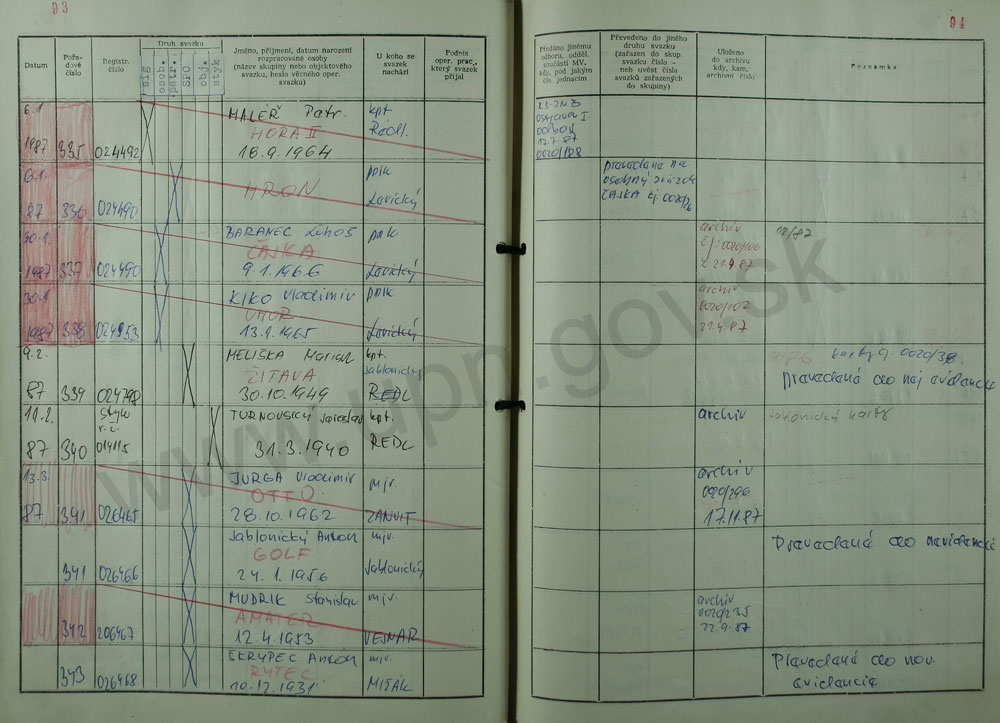 93
Datum
Pořadové číslo
Registr. číslo
Druh svazku
sig
osob.
patr.
SPO
obj.
styk
Jméno, příjmení, datum narození
rozpracované osoby
(název skupiny nebo objektového
svazku, heslo věcného oper.
svazku)
U koho se
svazek
nachází
Podpis
oper. prac.,
který svazek
přijal
6.1.
1987 335 024492
MALÉŘ Petr.
HORA II
18.9.1964
kpt
Rédl.
6.1.
87 336 024490
HRON
pplk
Lavický
30.1.
1987 337 024490
BARANEC Ľuboš
ČAJKA
9.1.1966
pplk
Lavický
30.1.
1987 338 024953
KIKO Vladimir
UHOR
13.9.1965
pplk
Lavický
9.2.
87 339 024798
MELIŠKA Marian
ŽITAVA
30.10.1949
kpt.
Jablonický
REDL
11.2.
87 340
styk
r.č.
014115
TURNOVSKÝ Jaroslav
31.3.1940
kpt.
REDL
13.3.
87 341 026465
JURGA Vladimir
OTTO
28.10.1962
mjr.
ZANVIT
341 026466
Jablonický Anton
GOLF
24.1.1956
mjr.
Jablonický
342 206467
MUDRIK Stanislav
AMATÉR
12.4.1953
mjr.
VESNAR
343 026468
ŠKRYPEC Anton
RYTEC
10.12.1931
mjr.
MIŠÁK
94
Předáno jinému
odboru, odděl.
součásti MV.
kdy, pod jakým
čís. jednacím
Převedeno do jiného
druhu svazku
(zařazen do skup.
svazku číslo -
neb uvést čísla
svazků zařazených
do skupiny)
Uloženo
do archivu
kdy, kam,
archivní číslo
Poznámka
Ostrava I.
odbor
12.7.87
0020/188
prevedené na
osobný zväzok
ČAJKA čj 0020/26
archiv
čj: 0020/106
z 21.4.87
18/87
archiv
0020/102
21.4.87
karty čj. 0020/38.
prevedená do novej evidencie
archiv
Jablonický karty
archiv
0020/296
17.11.87
Prevedená do nov evidencie
archiv
0020/235
22.9.87
Prevedená do nov.
evidencie
www.upn.gov.sk